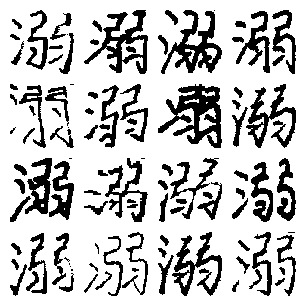 溺溺溺溺
溺溺溺溺
溺溺溺溺
溺溺溺溺